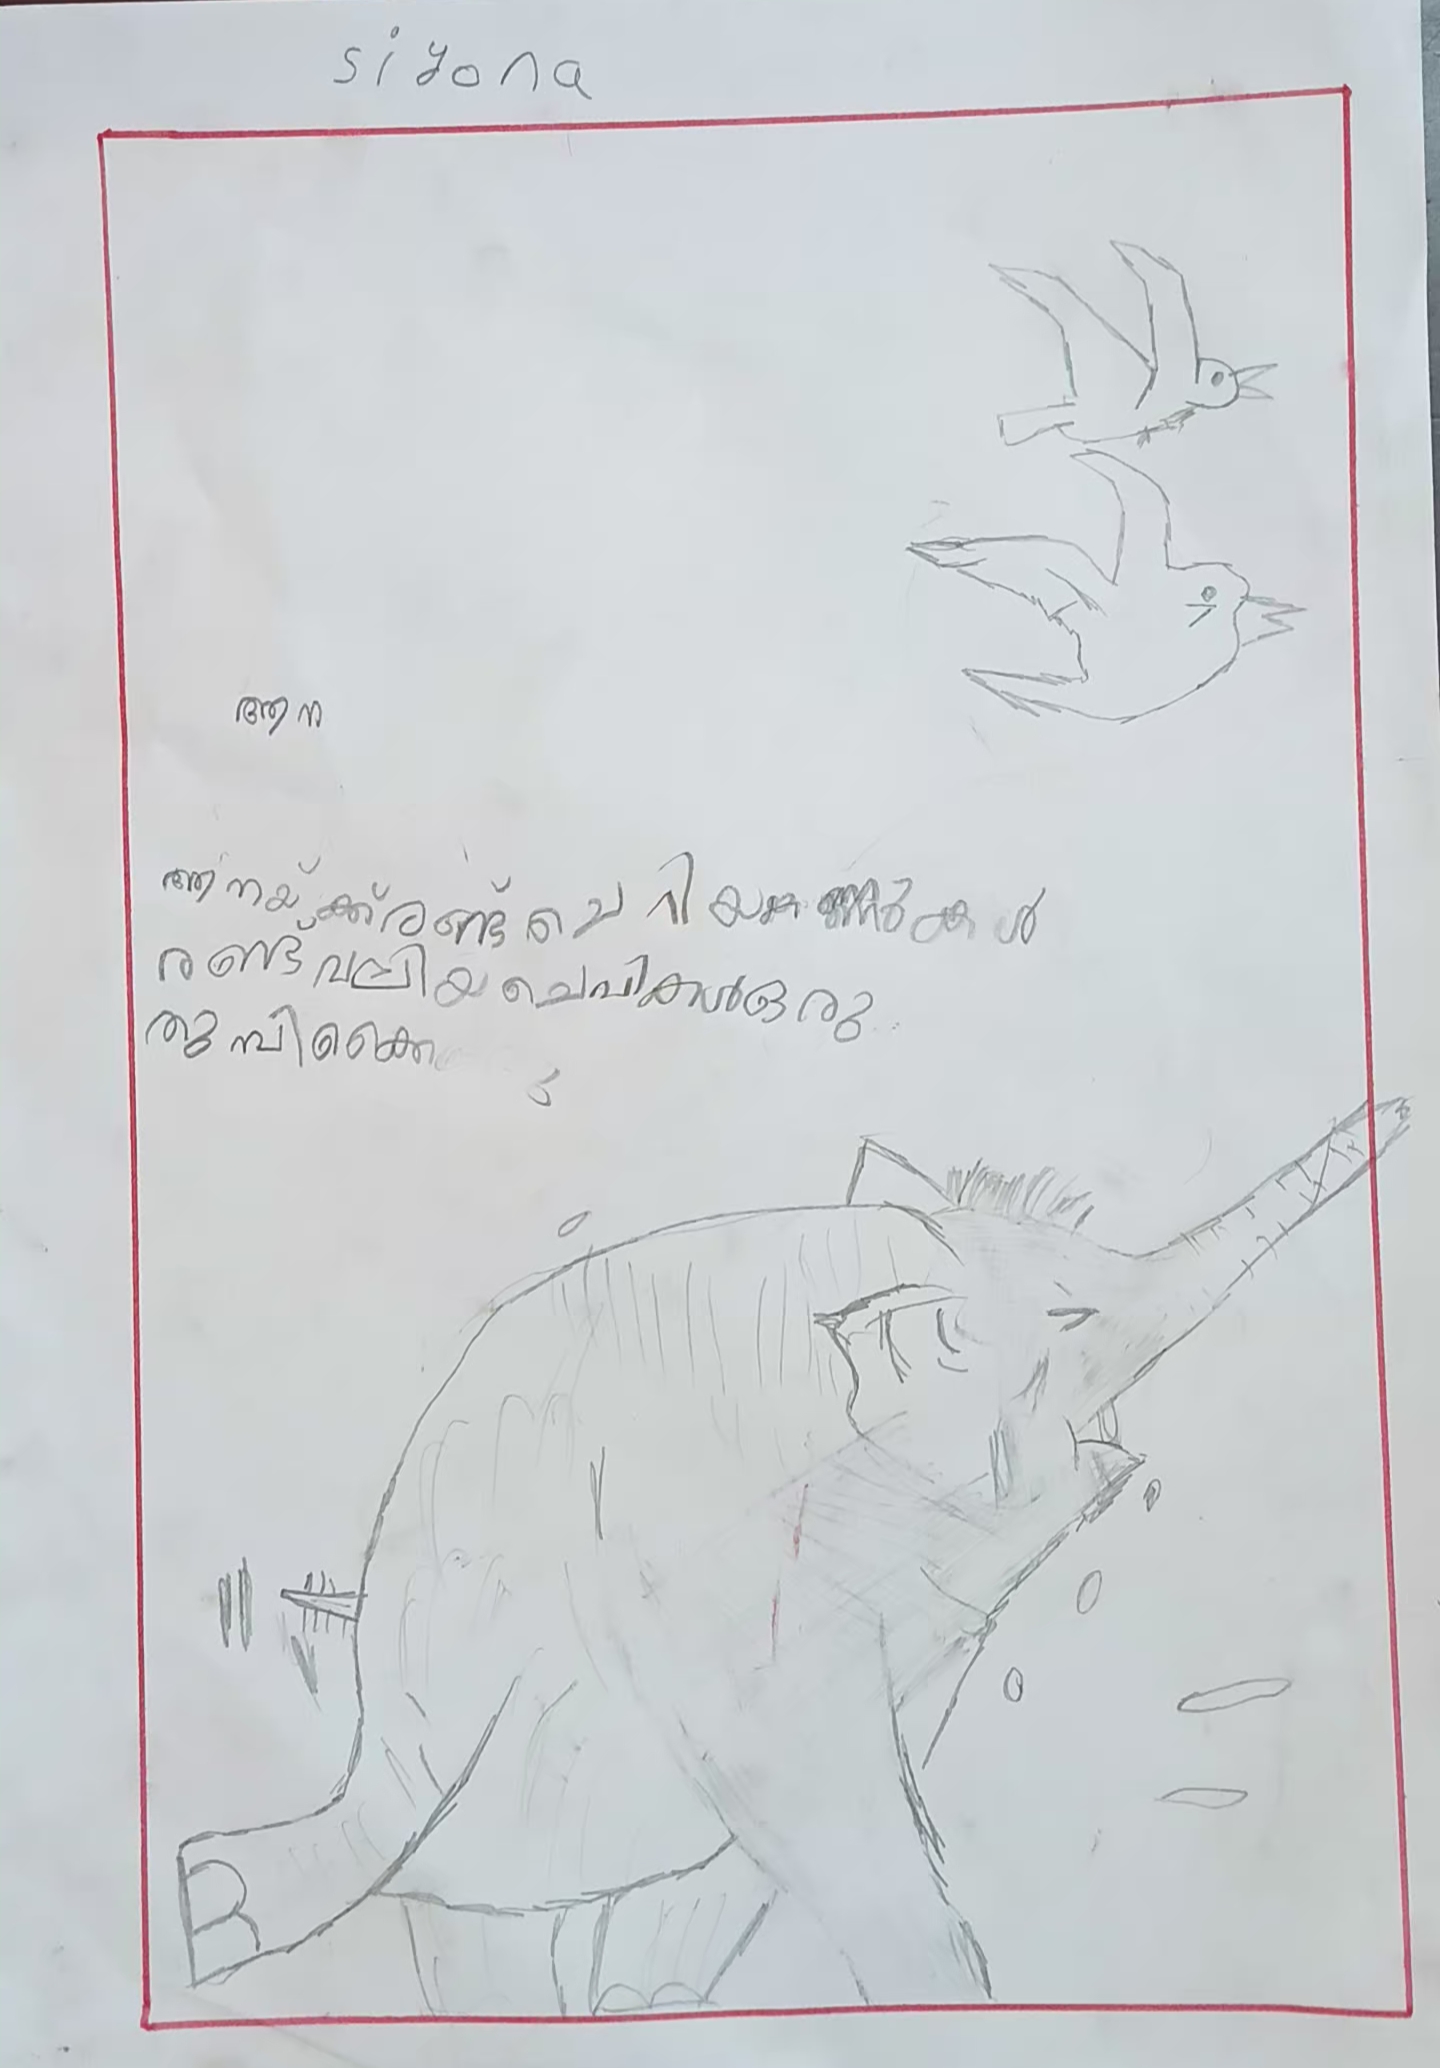 siyona
ആന
ആനയ്ക്ക് രണ്ട് ചെറിയ കണ്ണുകൾ
രണ്ട് വലിയ ചെവികൾ ഒരു
തുമ്പികൈ